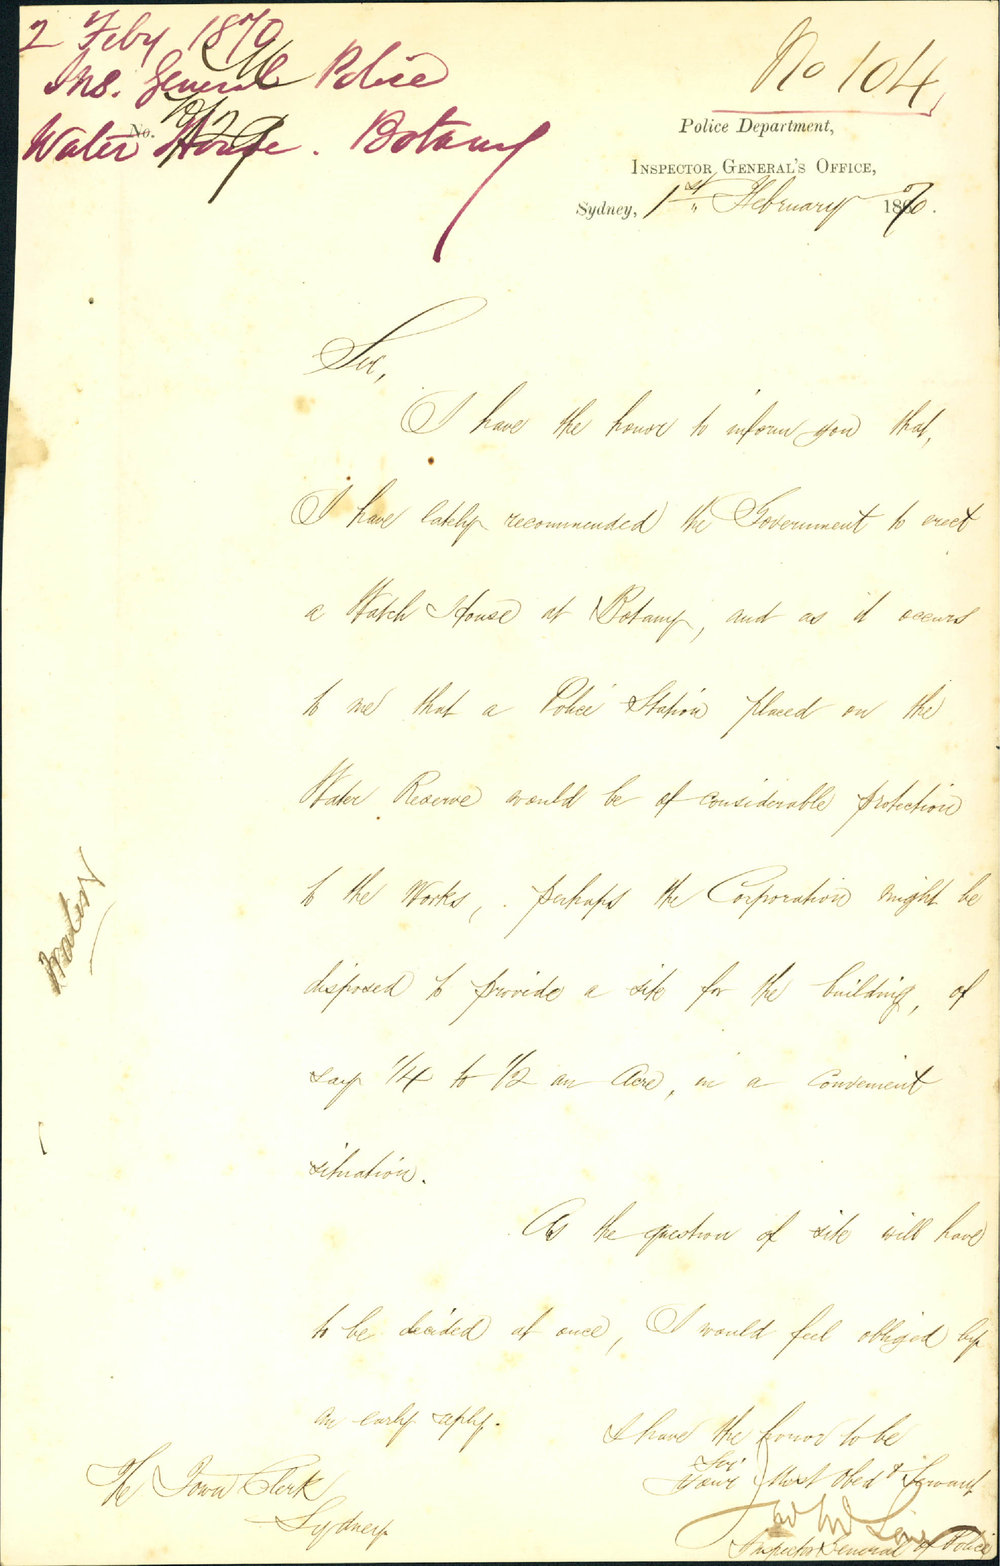 2 Feby 1870
Ins. General Police
Water House. Botany
No.
No 104
Police Department,
INSPECTOR GENERAL'S OFFICE,
Sydney, 1st February 1870.
Sir,
I have the honor to inform you that,
I have lately recommended the Government to erect
a Watch House at Botany, and as it occurs
to me that a Police Station placed on the
Water Reserve would be of considerable protection
to the Works, perhaps the Corporation might be
disposed to provide a site for the building, of
say 1/4 to 1/2 an Acre, in a convenient
situation.
As the question of site will have
to be decided at once, I would feel obliged by
an early reply.
I have the honor to be
Sir
Your Most Obedt Servant
Inspector General of Police
The Town Clerk
Sydney
Water